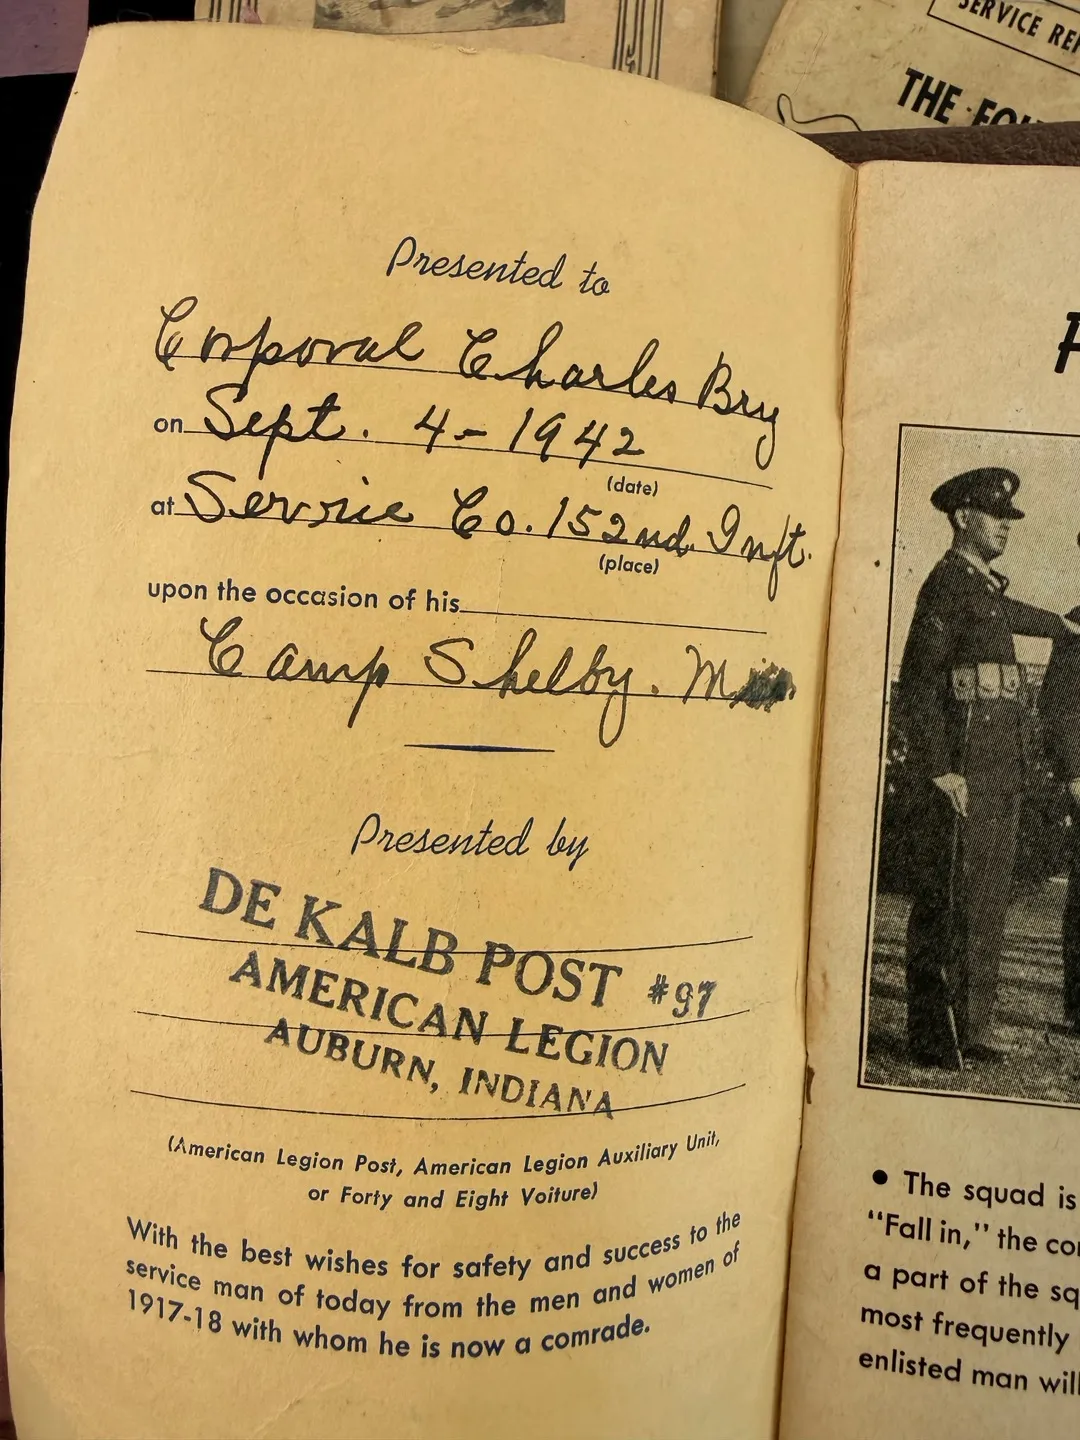 SERVICE
THE
Presented to
Corporal Charles Bry
on Sept. 4-1942
(date)
at Service Co. 152nd. Inft.
(place)
upon the occasion of his
Camp Shelby. Miss
Presented by
DE KALB POST #97
AMERICAN LEGION
AUBURN, INDIANA
(American Legion Post, American Legion Auxiliary Unit,
or Forty and Eight Voiture)
With the best wishes for safety and success to the
service man of today from the men and women of
1917-18 with whom he is now a comrade.
• The squad is
“Fall in,” the
a part of the
most frequently
enlisted man will